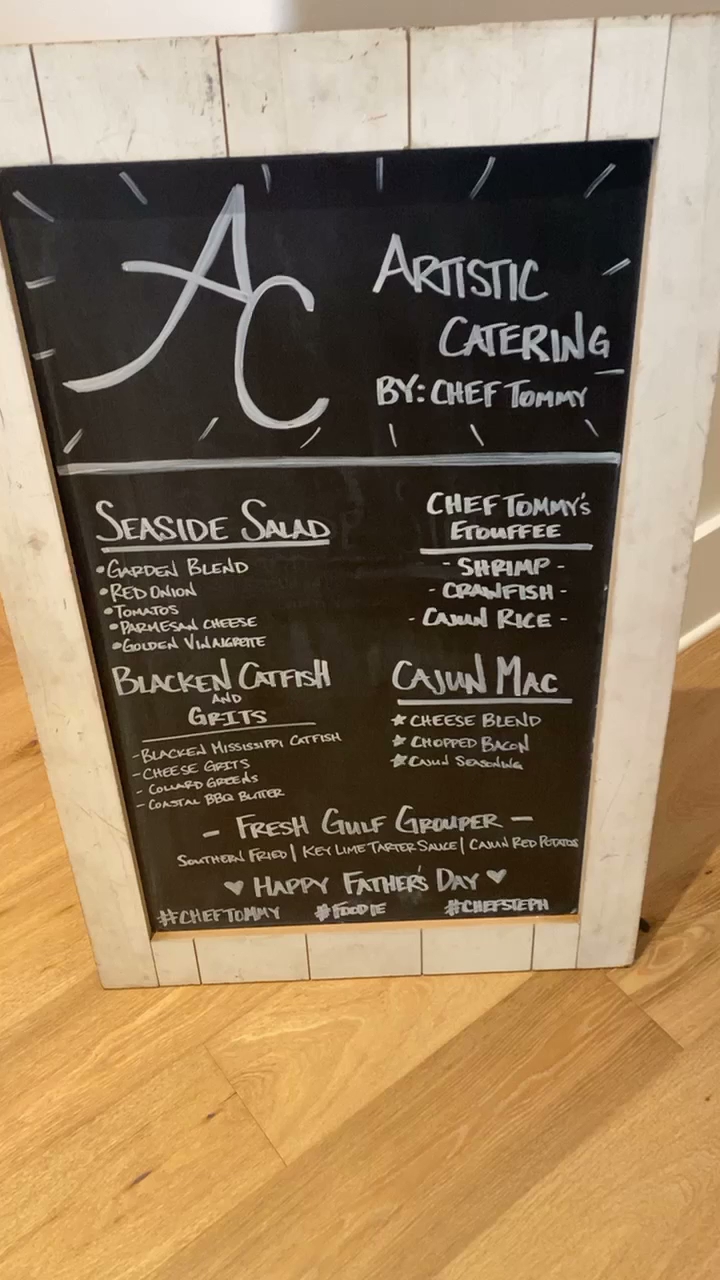 AC
ARTISTIC
CATERING
BY: CHEF TOMMY
SEASIDE SALAD
•GARDEN BLEND
•RED ONION
•TOMATOS
•PARMESAN CHEESE
•GOLDEN VINAIGRETTE
CHEF TOMMY'S
ETOUFFEE
- SHRIMP -
- CRAWFISH -
- CAJUN RICE -
BLACKEN CATFISH
AND
GRITS
-BLACKEN MISSISSIPPI CATFISH
-CHEESE GRITS
- COLLARD GREENS
- COASTAL BBQ BUTTER
CAJUN MAC
★ CHEESE BLEND
★ CHOPPED BACON
★ CAJUN SEASONING
- FRESH GULF GROUPER -
SOUTHERN FRIED | KEY LIME TARTER SAUCE | CAJUN RED POTATOS
♥ HAPPY FATHER'S DAY ♥
#CHEFTOMMY #FOODIE #CHEFSTEPH